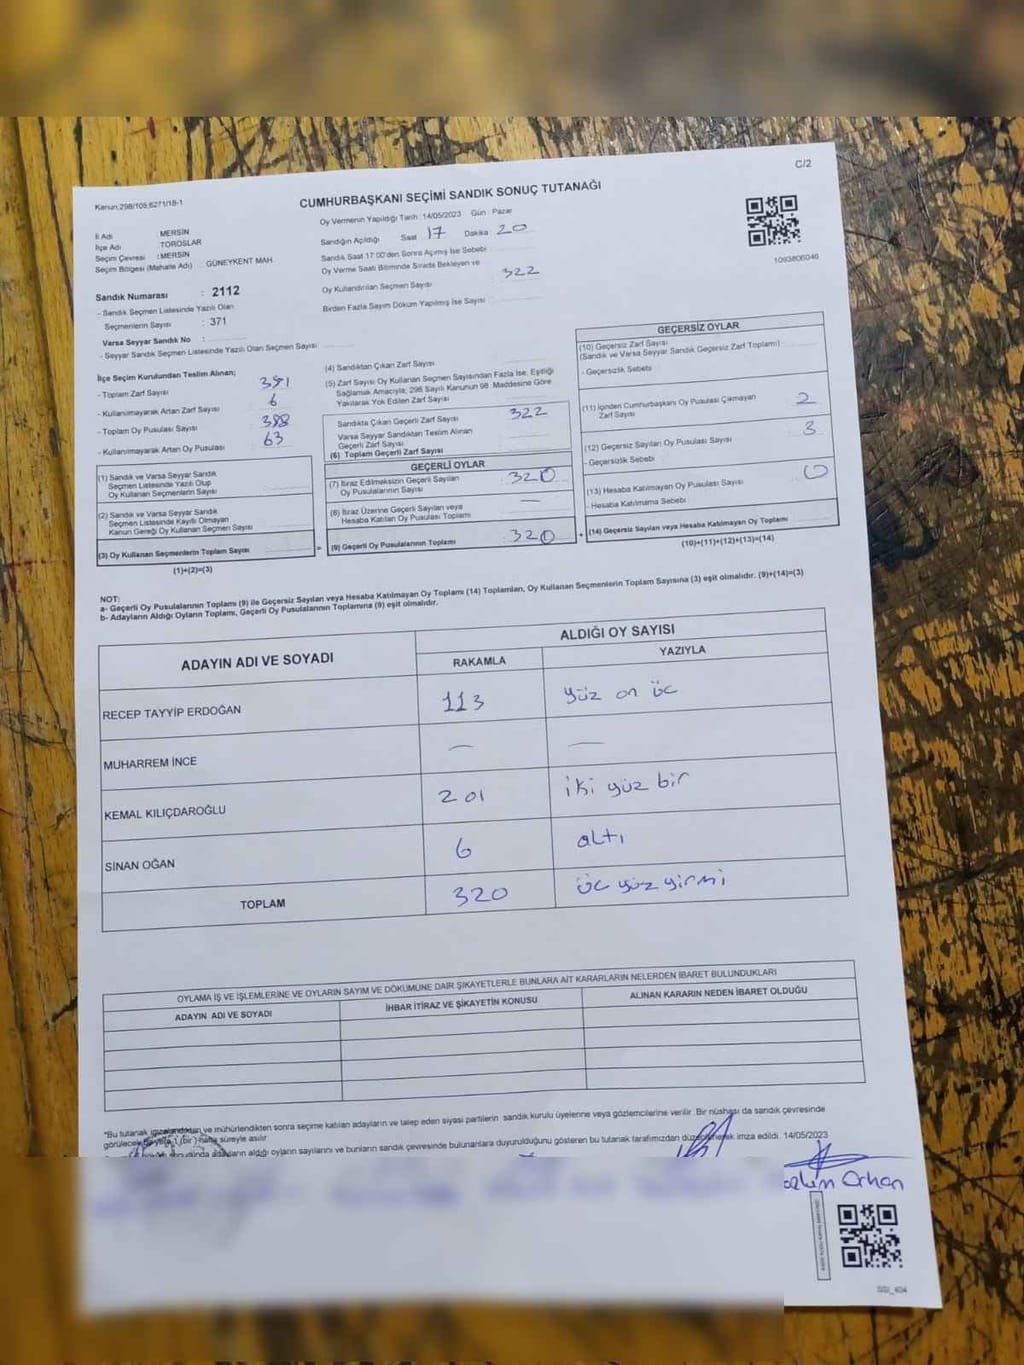 C/2
Kanun.298/105,6271/18-1
CUMHURBAŞKANI SEÇİMİ SANDIK SONUÇ TUTANAĞI
İl Adı : MERSİN
İlçe Adı : TOROSLAR
Seçim Çevresi : MERSİN
Seçim Bölgesi (Mahalle Adı) : GÜNEYKENT MAH.
Oy Vermenin Yapıldığı Tarih : 14/05/2023 Gün : Pazar
Sandığın Açıldığı Saat 17 Dakika 20
Sandık Saat 17:00'den Sonra Açılmış İse Sebebi
Oy Verme Saati Bitiminde Sırada Bekleyen ve
Oy Kullandırılan Seçmen Sayısı 322
Birden Fazla Sayım Döküm Yapılmış İse Sayısı
1093806046
Sandık Numarası : 2112
- Sandık Seçmen Listesinde Yazılı Olan
Seçmenlerin Sayısı : 371
Varsa Seyyar Sandık No :
- Seyyar Sandık Seçmen Listesinde Yazılı Olan Seçmen Sayısı:
İlçe Seçim Kurulundan Teslim Alınan;
- Toplam Zarf Sayısı
- Kullanılmayarak Artan Zarf Sayısı 6
- Toplam Oy Pusulası Sayısı 388
- Kullanılmayarak Artan Oy Pusulası 63
(1) Sandık ve Varsa Seyyar Sandık
Seçmen Listesinde Yazılı Olup
Oy Kullanan Seçmenlerin Sayısı
(2) Sandık ve Varsa Seyyar Sandık
Seçmen Listesinde Kayıtlı Olmayan
Kanun Gereği Oy Kullanan Seçmen Sayısı
(3) Oy Kullanan Seçmenlerin Toplam Sayısı =
(1)+(2)=(3)
(4) Sandıktan Çıkan Zarf Sayısı
(5) Zarf Sayısı Oy Kullanan Seçmen Sayısından Fazla İse; Eşitliği
Sağlamak Amacıyla; 298 Sayılı Kanunun 98. Maddesine Göre
Yakılarak Yok Edilen Zarf Sayısı
Sandıkta Çıkan Geçerli Zarf Sayısı 322
Varsa Seyyar Sandıktan Teslim Alınan
Geçerli Zarf Sayısı
(6) Toplam Geçerli Zarf Sayısı
GEÇERLİ OYLAR
(7) İtiraz Edilmeksizin Geçerli Sayılan
Oy Pusulalarının Sayısı 320
(8) İtiraz Üzerine Geçerli Sayılan veya
Hesaba Katılan Oy Pusulası Toplamı —
(9) Geçerli Oy Pusulalarının Toplamı 320 +
GEÇERSİZ OYLAR
(10) Geçersiz Zarf Sayısı
(Sandık ve Varsa Seyyar Sandık Geçersiz Zarf Toplamı)
- Geçersizlik Sebebi
(11) İçinden Cumhurbaşkanı Oy Pusulası Çıkmayan
Zarf Sayısı 2
(12) Geçersiz Sayılan Oy Pusulası Sayısı 3
- Geçersizlik Sebebi
(13) Hesaba Katılmayan Oy Pusulası Sayısı 0
- Hesaba Katılmama Sebebi
(14) Geçersiz Sayılan veya Hesaba Katılmayan Oy Toplamı
(10)+(11)+(12)+(13)=(14)
NOT:
a- Geçerli Oy Pusulalarının Toplamı (9) ile Geçersiz Sayılan veya Hesaba Katılmayan Oy Toplamı (14) Toplamları, Oy Kullanan Seçmenlerin Toplam Sayısına (3) eşit olmalıdır. (9)+(14)=(3)
b- Adayların Aldığı Oyların Toplamı, Geçerli Oy Pusulalarının Toplamına (9) eşit olmalıdır.
ADAYIN ADI VE SOYADI
ALDIĞI OY SAYISI
RAKAMLA YAZIYLA
RECEP TAYYİP ERDOĞAN 113 yüz on üç
MUHARREM İNCE — —
KEMAL KILIÇDAROĞLU 201 iki yüz bir
SİNAN OĞAN 6 altı
TOPLAM 320 üç yüz yirmi
OYLAMA İŞ VE İŞLEMLERİNE VE OYLARIN SAYIM VE DÖKÜMÜNE DAİR ŞİKAYETLERLE BUNLARA AİT KARARLARIN NELERDEN İBARET BULUNDUKLARI
ADAYIN ADI VE SOYADI İHBAR İTİRAZ VE ŞİKAYETİN KONUSU ALINAN KARARIN NEDEN İBARET OLDUĞU
"Bu tutanak imzalandıktan ve mühürlendikten sonra seçime katılan adayların ve talep eden siyasi partilerin sandık kurulu üyelerine veya gözlemcilerine verilir. Bir nüshası da sandık çevresinde
görülecek bir yere 1 (bir) hafta süreyle asılır
adayların aldığı oyların sayılarını ve bunların sandık çevresinde bulunanlara duyurulduğunu gösteren bu tutanak tarafımızdan düzenlenerek imza edildi. 14/05/2023
Orhan